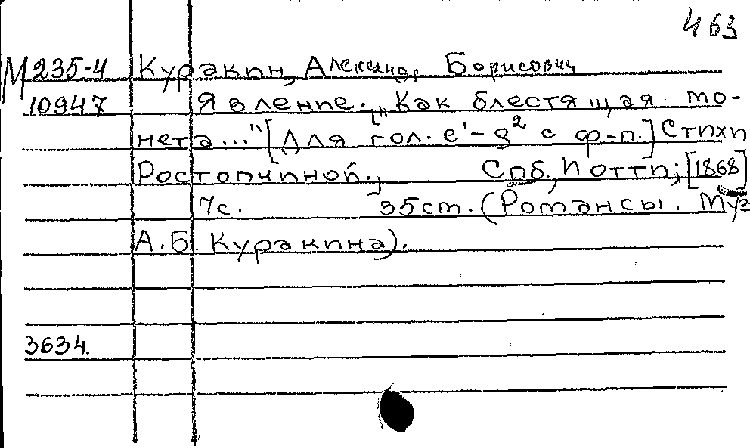 463
М 235-4 Куракин, Александр Борисович
10947 Явление. „Как блестящая мо-
нета..." [Для гол. e¹-g² с ф-п.] Стихи
Ростопчиной.; Спб., Иотти; [1868]
7с. 35см. (Романсы. Муз
А.Б Куракина).
3634.